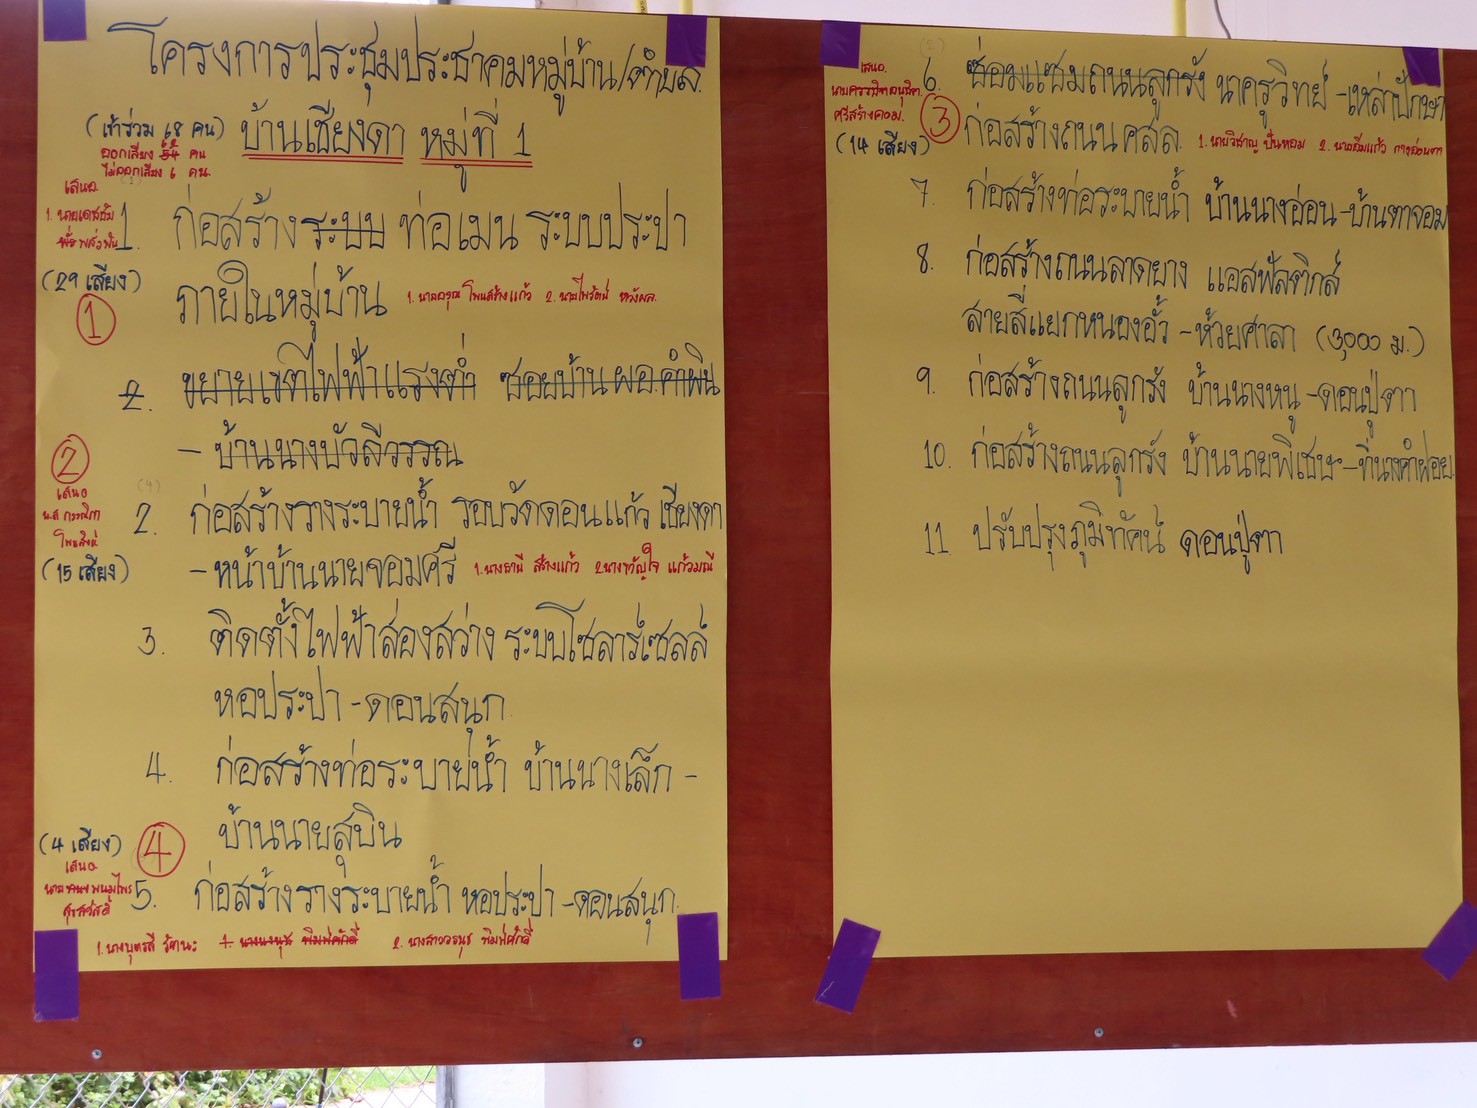 โครงการประชุมประชาคมหมู่บ้าน/ตำบล.
(เข้าร่วม 68 คน)
บ้านเชียงดา หมู่ที่ 1
62
ออกเสียง 54 คน
ไม่ออกเสียง 6 คน.
เสนอ
1. นายเดชอุ้ม
1. ก่อสร้างระบบ ท่อเมน ระบบประปา
(29 เสียง)
ภายในหมู่บ้าน
1. นายอรุณ โพนสร้างแก้ว 2. นายไพรัตน์ หงษ์ผล
1
2. ขยายเขตไฟฟ้าแรงต่ำ ซอยบ้าน ผอ.คำผิน
- บ้านนางบัวสีวรรณ
2
เสนอ
น.ส กรรณิกา
โพนสิงห์
(4)
2. ก่อสร้างรางระบายน้ำ รอบวัดดอนแก้ว เชียงดา
(15 เสียง)
- หน้าบ้านนายจอมศรี
1.นางธานี สร้างแก้ว 2.นางขวัญใจ แก้วมณี
3. ติดตั้งไฟฟ้าส่องสว่าง ระบบโซลาร์เซลล์
หอประปา - ดอนสนุก
4. ก่อสร้างท่อระบายน้ำ บ้านนางเล็ก -
บ้านนายสุบิน
(4 เสียง)
4
เสนอ
5. ก่อสร้างรางระบายน้ำ หอประปา - ดอนสนุก.
สุรสวัสดิ์
1. นางบุตรสี รัตนะ 1. นางนงนุช พิมพ์ศักดิ์ 2. นางสาวอรนุช พิมพ์ศักดิ์
เสนอ.
6. ซ่อมแซมถนนลูกรัง นาครูวิทย์ - เหล่าปักษา
ศรีสร้างคอม.
3
(14 เสียง)
ก่อสร้างถนน คสล. 1. นายวิชาญ ปิ่นหอม 2. นายอิ่มแก้ว กางอ่อนตา
7. ก่อสร้างท่อระบายน้ำ บ้านนางอ่อน - บ้านตาจอม
8. ก่อสร้างถนนลาดยาง แอสฟัลติกส์
สายสี่แยกหนองอั้ว - ห้วยศาลา (3,000 ม.)
9. ก่อสร้างถนนลูกรัง บ้านนางหนู - ดอนปู่ตา
10. ก่อสร้างถนนลูกรัง บ้านนายพิเชษ - ที่นางคำฝอย
11 ปรับปรุงภูมิทัศน์ ดอนปู่ตา